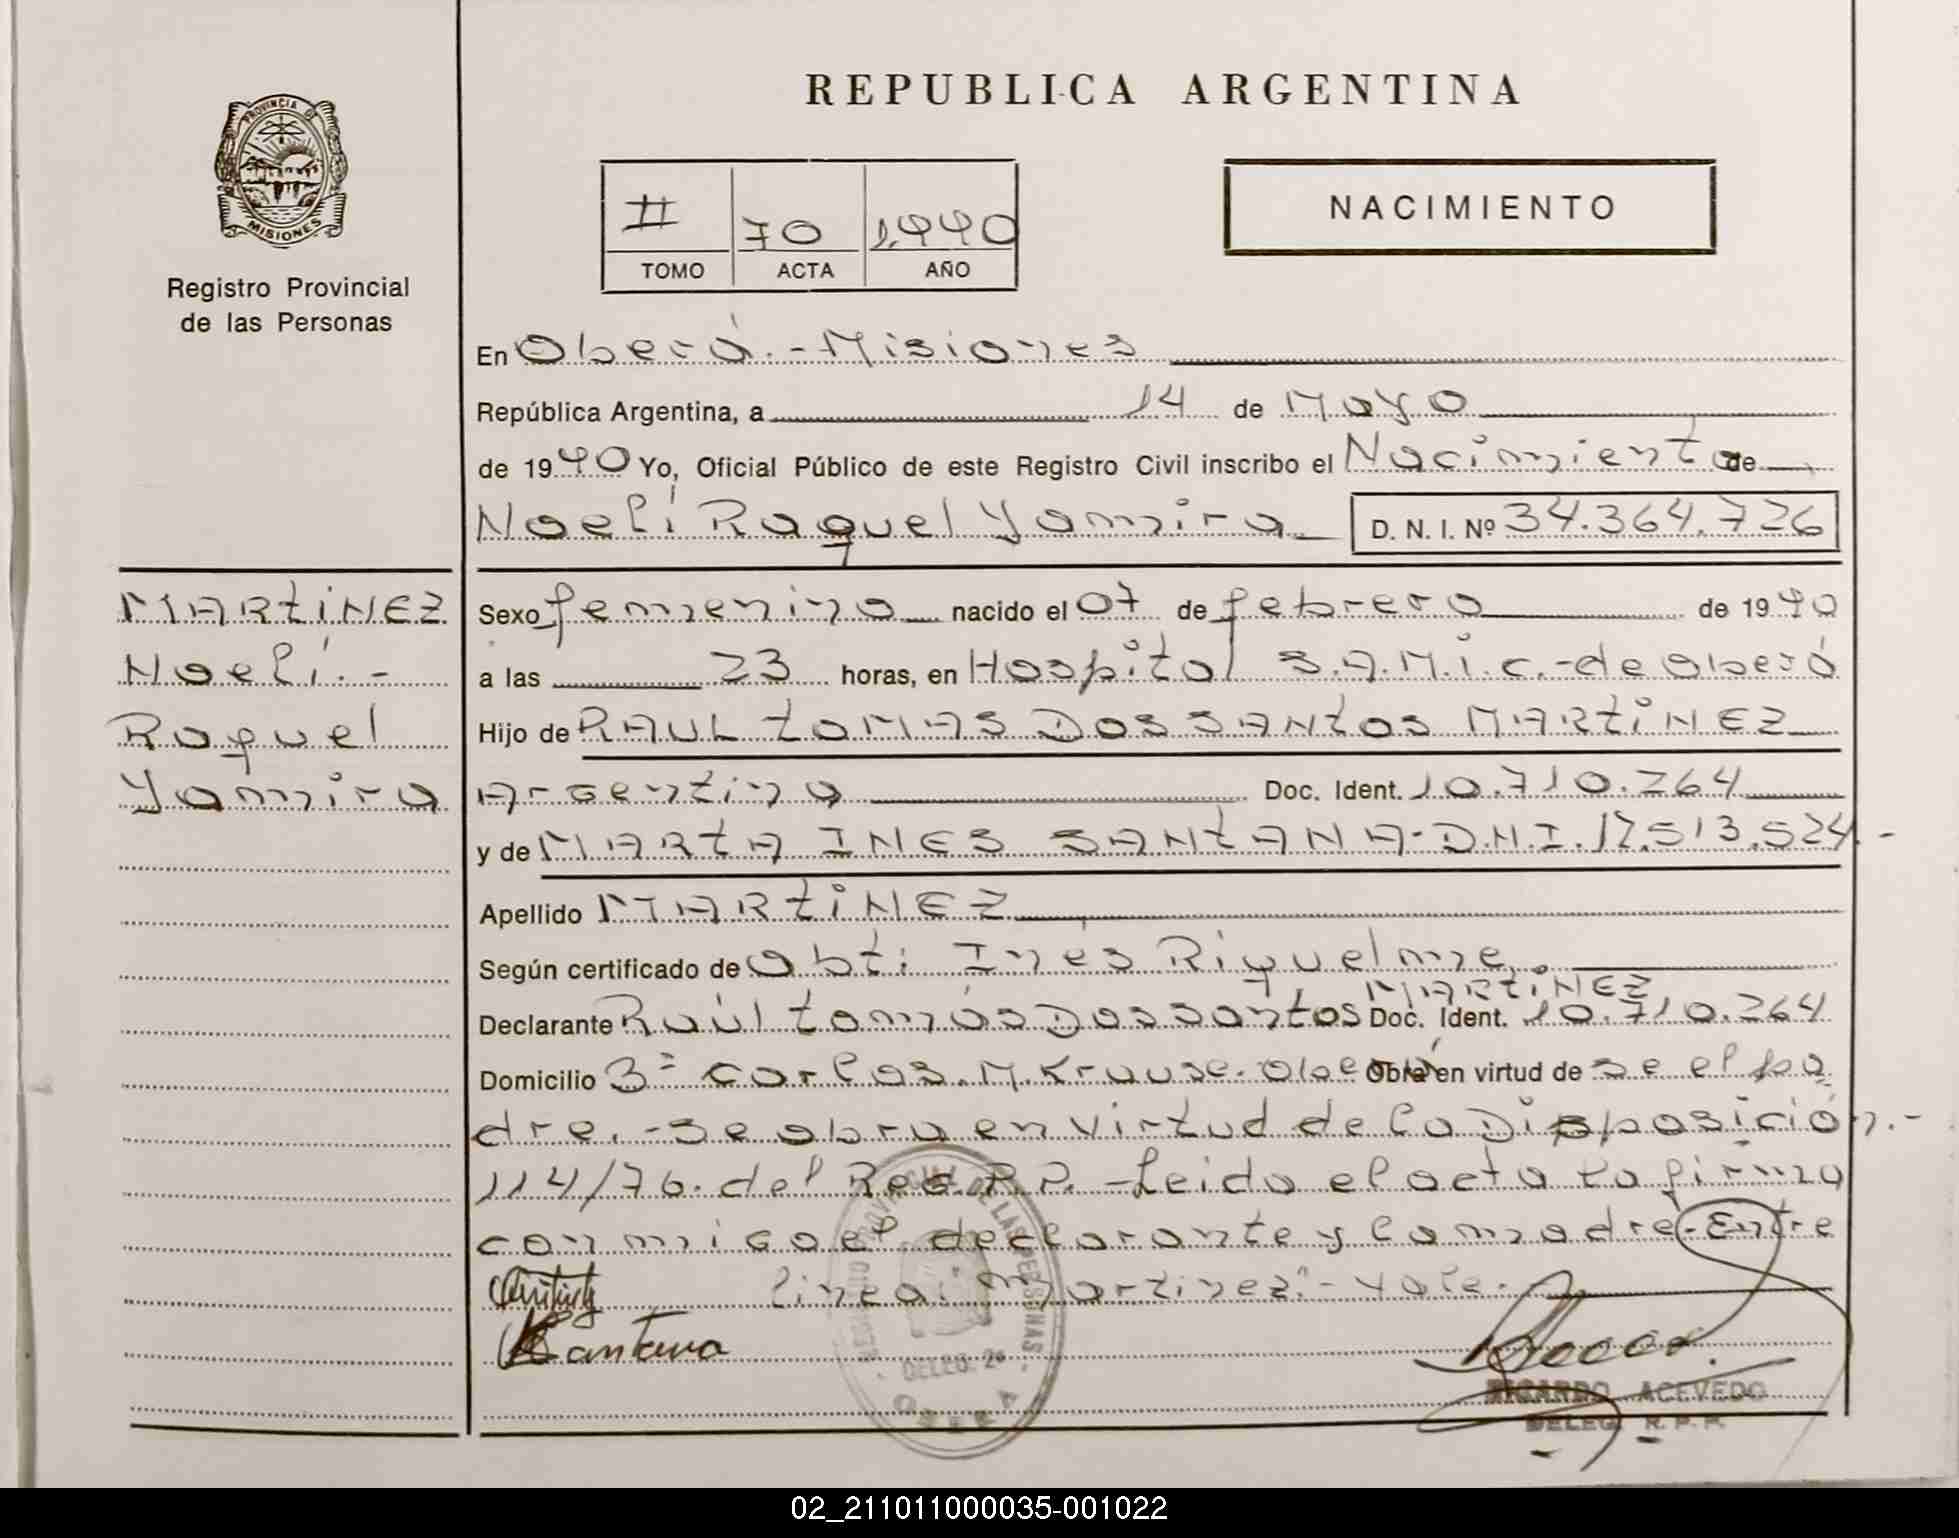 REPUBLICA ARGENTINA
PROVINCIA DE
MISIONES
Registro Provincial
de las Personas
II 70 1990
TOMO ACTA AÑO
NACIMIENTO
En Oberá.-Misiones
República Argentina, a 14 de Mayo
de 1990 Yo, Oficial Público de este Registro Civil inscribo el Nacimiento de
Noelí Raquel Yamira D. N. I. Nº 34.364.726
MARtiNEZ
Noelí.-
Raquel
Yamira
Sexo femenino nacido el 07 de febrero de 1990
a las 23 horas, en Hospital S.A.M.i.c.-de oberá
Hijo de RAUL tOMAS DOS SANtOS MARtiNEZ
Argentina Doc. Ident. 10.710.264
y de MARtA INES SANtANA-D.N.I.17.513.524.-
Apellido MARtiNEZ
Según certificado de Obt: Inés Riquelme
MARtiNEZ
Declarante Raúl tomás Dos santos Doc. Ident. 10.710.264
Domicilio 3= Carlos.M.Krause.Oberá Obra en virtud de se el pa
dre.-se obra en virtud de la Disposición.-
114/76. del Reg.P.P.-Leido el acta la firma
conmigo el declarante y la madre-Entre
linea: "Martinez"-Vale.-
Santana
REGISTRO PROVINCIAL DE LAS PERSONAS
DELEG. 2ª
OBERA
RICARDO ACEVEDO
DELEG. R. P. P.
02_211011000035-001022